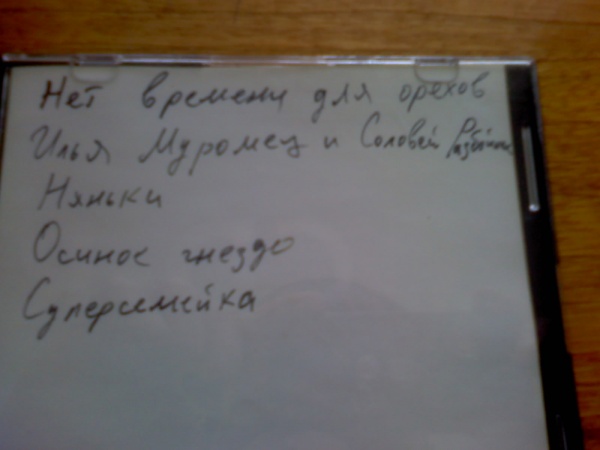 Нет времени для орехов
Илья Муромец и Соловей Разбойник
Няньки
Осиное гнездо
Суперсемейка